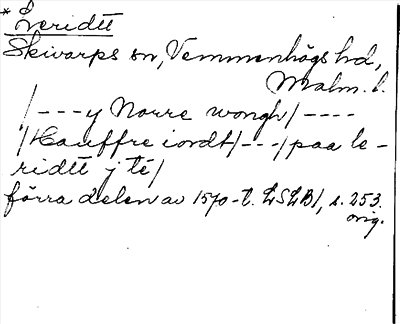 * Leridtt
Skivarps sn, Vemmenhögs hd,
Malm. l.
/---y Norre wongh/----
/Hauffre iordt/---/paa le-
ridtt j té/
förra delen av 1570-t. LSLB1, s. 253.
orig.